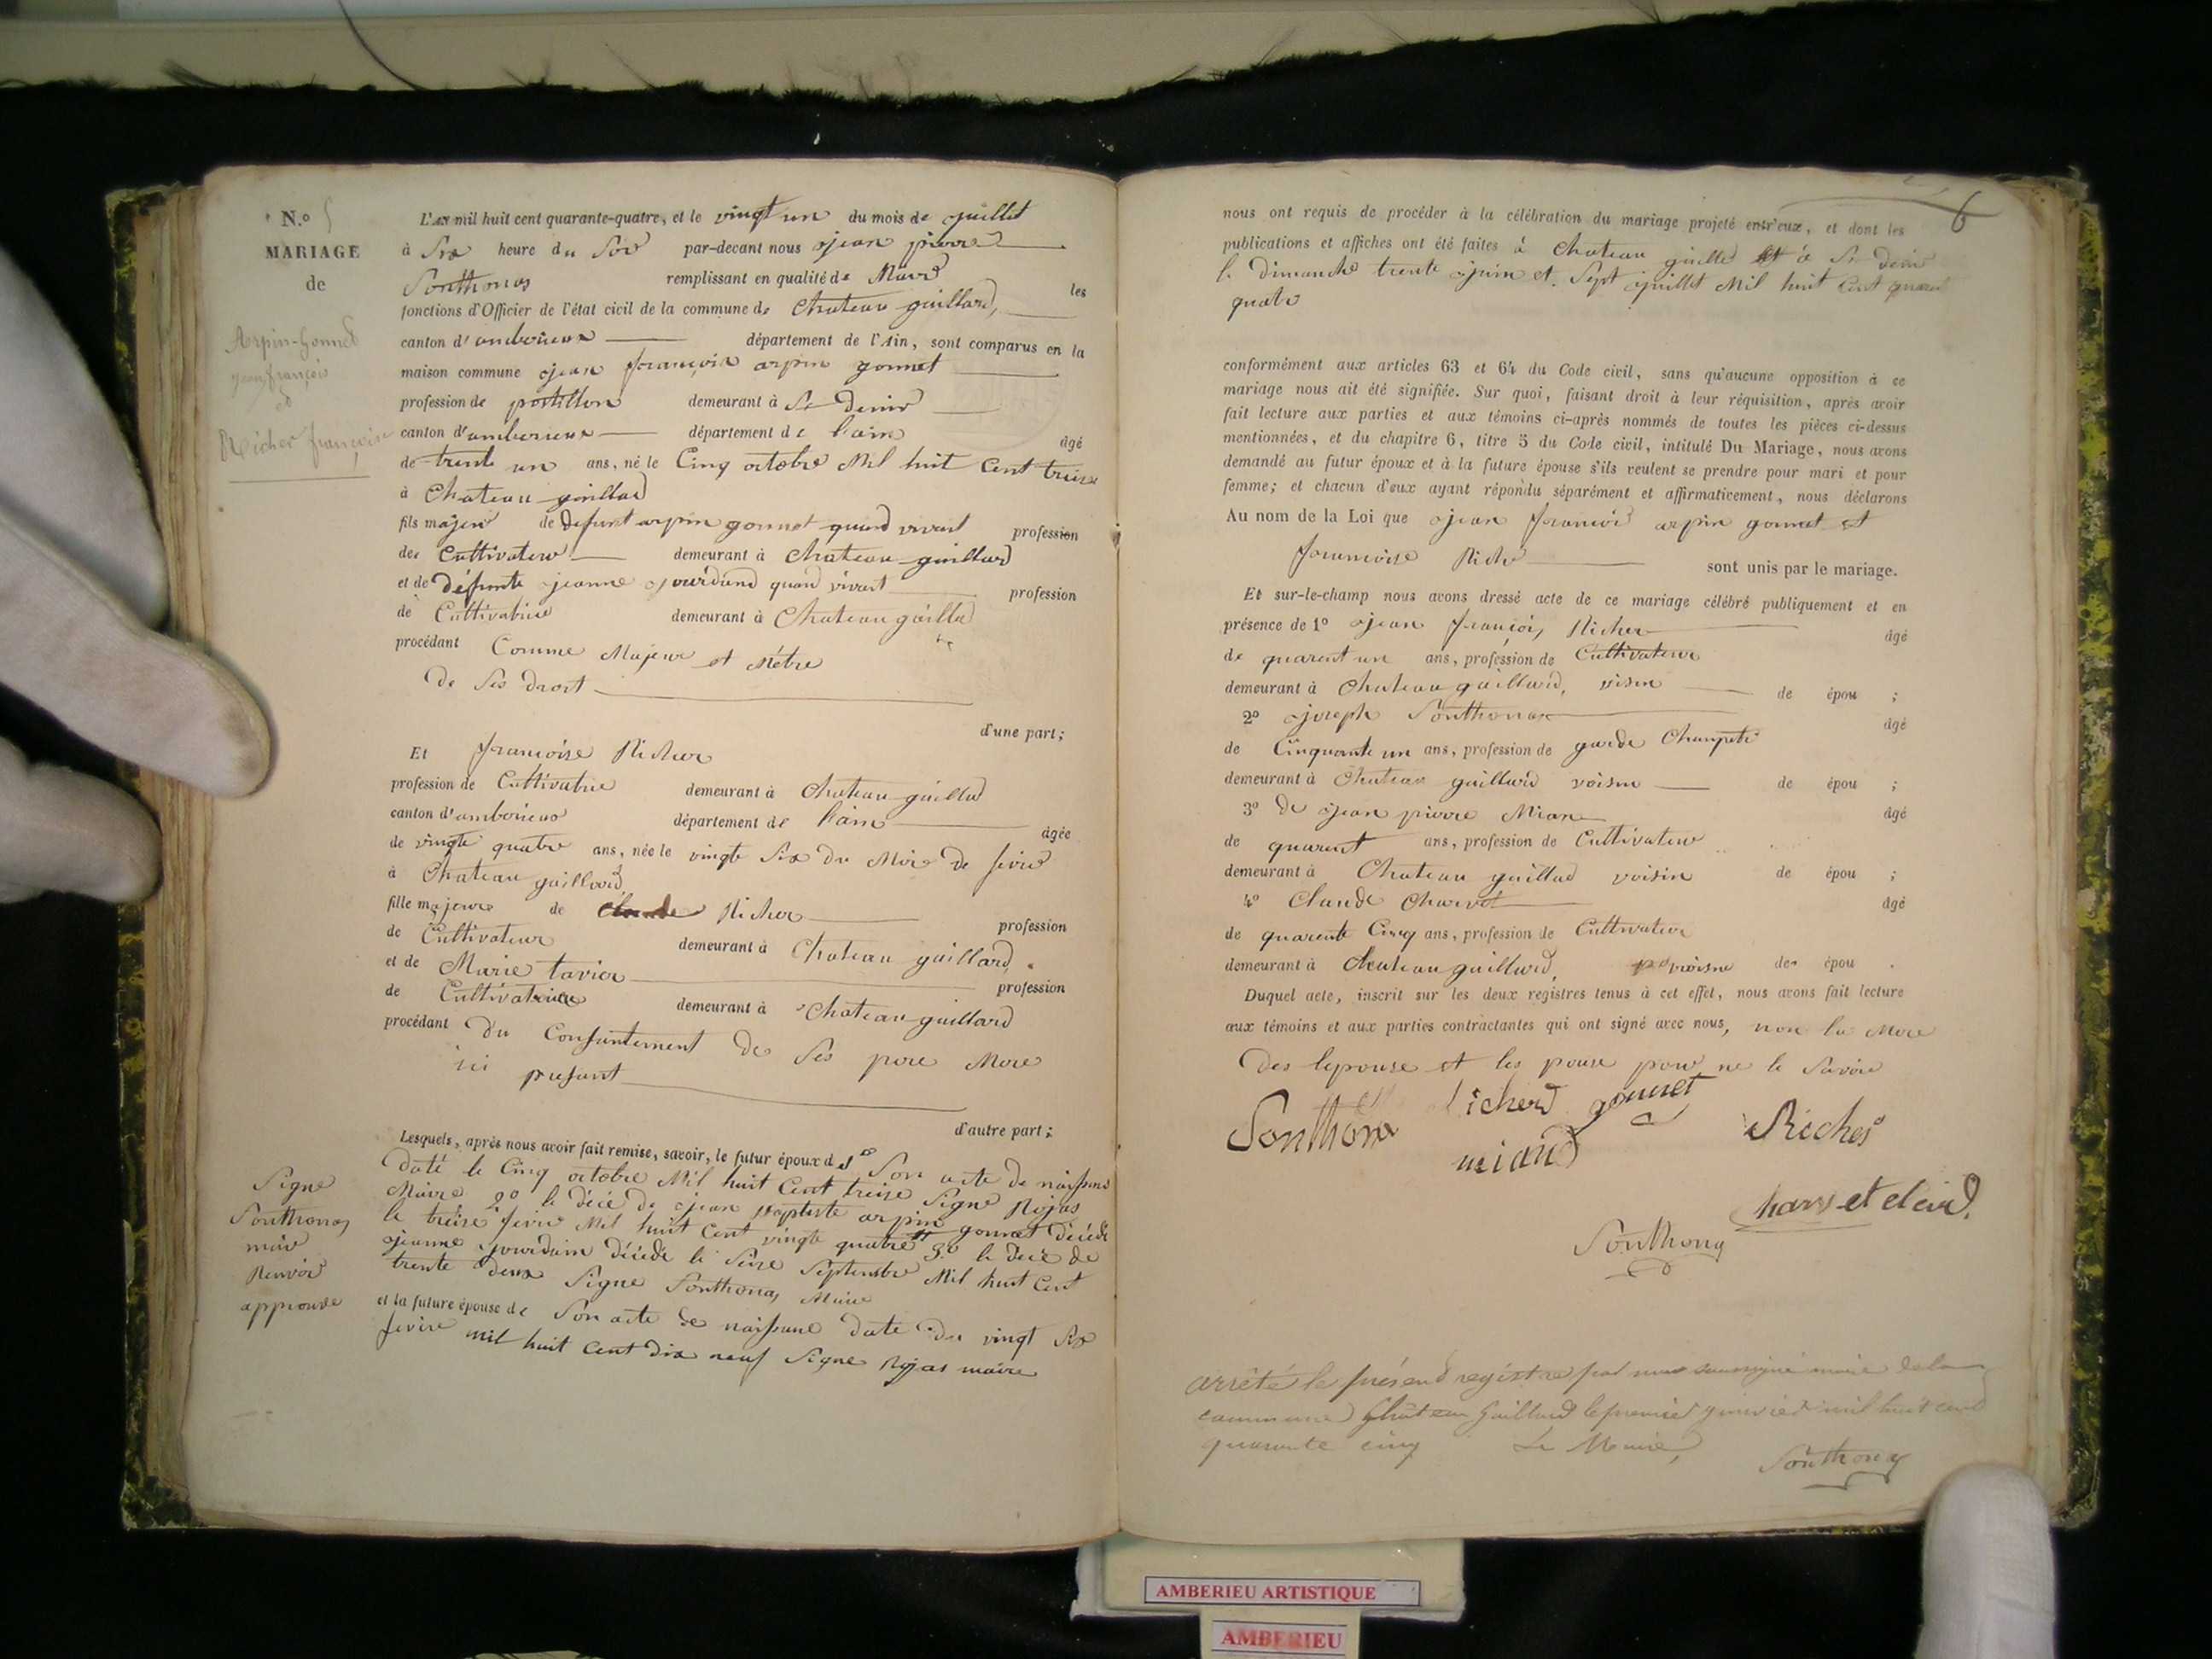 N.o 5
MARIAGE
de
Arpin-Gonnet
jean françois
et
Richer françoise
L'an mil huit cent quarante-quatre, et le vingt un du mois de juillet
à Six heure du Soir par-devant nous jean pierre
Sonthonas remplissant en qualité de Maire les
fonctions d'Officier de l'état civil de la commune de Chateau gaillard,
canton d'amberieux département de l'Ain, sont comparus en la
maison commune jean françois arpin gonnet
profession de postillon demeurant à St denis
canton d'amberieux département de l'ain âgé
de trente un ans, né le Cinq octobre Mil huit Cent treize
à Chateau gaillard
fils majeur de defunt arpin gonnet quand vivant profession
de Cultivateur demeurant à Chateau gaillard
et de défunte jeanne jourdand quand vivant profession
de Cultivatrice demeurant à Chateau gaillad
procédant Comme Majeur et Mètre
de Ses droit
d'une part;
Et françoise Richer
profession de Cultivatrie demeurant à Chateau gaillad
canton d'amberieux département de l'ain âgée
de vingte quatre ans, née le vingte Six du Mois de fevrié
à Chateau gaillard
fille majeure de claude Richer profession
de Cultivateur demeurant à Chateau gaillard
et de Marie tavier profession
de Cultivatrice demeurant à Chateau gaillard
procédant du Consantement de Ses pere Mere
ici presant
d'autre part;
Lesquels, après nous avoir fait remise, savoir, le futur époux de 1o Son acte de naissance
daté le Cinq octobre Mil huit Cent treize Signe Rojas
Maire 2o le décé de jean Baptiste arpin gonnet décédé
le treise fevrié Mil huit Cent vingte quatre 3o le décé de
jeanne jourdain décédé le Seize Septembre Mil huit Cent
trente deux Signe Sonthonas Maire
et la future épouse de Son acte de naissance date du vingt Six
fevire mil huit cent dix neuf Signe Rojas maire
Signe
Sonthonas
maire
Renvoi
approuve
6
nous ont requis de procéder à la célébration du mariage projeté entr'eux, et dont les
publications et affiches ont été faites à Chateau gaillad et à St denis
le Dimanche trente juin et Sept juillet Mil huit Cent quarant
quatre
conformément aux articles 63 et 64 du Code civil, sans qu'aucune opposition à ce
mariage nous ait été signifiée. Sur quoi, faisant droit à leur réquisition, après avoir
fait lecture aux parties et aux témoins ci-après nommés de toutes les pièces ci-dessus
mentionnées, et du chapitre 6, titre 5 du Code civil, intitulé Du Mariage, nous avons
demandé au futur époux et à la future épouse s'ils veulent se prendre pour mari et pour
femme; et chacun d'eux ayant répondu séparément et affirmativement, nous déclarons
Au nom de la Loi que jean françois arpin gonnet et
françoise Riche sont unis par le mariage.
Et sur-le-champ nous avons dressé acte de ce mariage célébré publiquement et en
présence de 1o jean françois Richer âgé
de quarent un ans, profession de Cultivateur
demeurant à Chateau gaillard, visin de épou ;
2o joseph Sonthonax âgé
de Cinquante un ans, profession de garde Champetre
demeurant à Chateau gaillard voisin de épou ;
3o de jean pierre Mian âgé
de quarent ans, profession de Cultivateur
demeurant à Chateau gaillad voisin de épou ;
4o Claude Charvet âgé
de quarente Cinq ans, profession de Cultivateur
demeurant à Chateau gaillard, voisin des épou .
Duquel acte, inscrit sur les deux registres tenus à cet effet, nous avons fait lecture
aux témoins et aux parties contractantes qui ont signé avec nous, non la Mere
des lepouse et les pouse pour ne le Savoir
Sonthona Richerd gonnet Richer
miand
Charvet cleud.
Sonthonax
arrêté le présend régistre par nous soussigné maire de la
commune Château Gaillard le premier janvier mil huit cent
quarante cinq Le Maire,
Sonthonax
AMBERIEU ARTISTIQUE
AMBERIEU